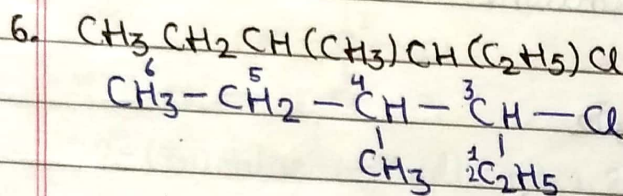 6. CH3 CH2 CH (CH3) CH (C2H5) Cl
6 5 4 3
CH3 – CH2 – CH – CH – Cl
CH3 1 2 C2H5